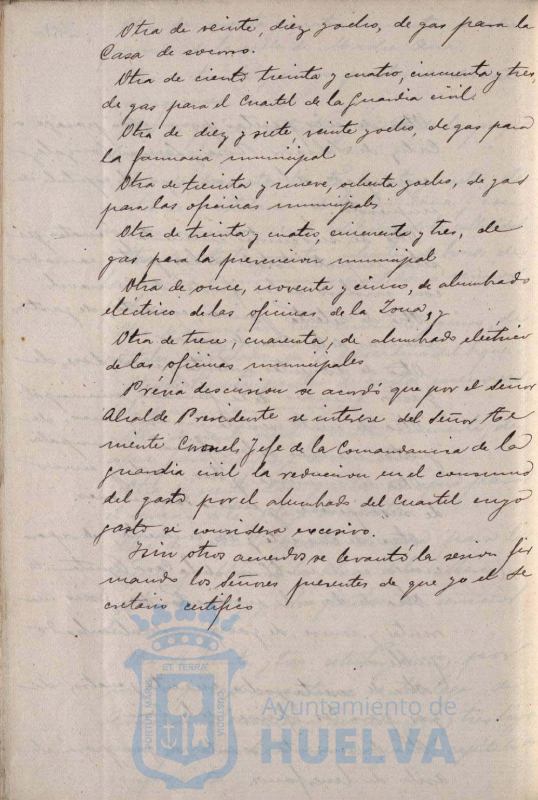 Otra de veinte, diez y ocho, de gas para la
Casa de socorro.
Otra de ciento treinta y cuatro, cincuenta y tres,
de gas para el Cuartel de la Guardia civil
Otra de diez y siete veinte y ocho, de gas para
la farmacia municipal
Otra de treinta y nueve, ochenta y ocho, de gas
para las oficinas municipales
Otra de treinta y cuatro, cincuenta y tres, de
gas para la prevencion municipal
Otra de once, noventa y cinco, de alumbrado
eléctrico de las oficinas de la Zona, y
Otra de trece, cuarenta, de alumbrado eléctrico
de las oficinas municipales
Prévia discusion se acordó que por el señor
Alcalde Presidente se interese del Señor Te
niente Coronel, Jefe de la Comandancia de la
guardia civil la reduccion en el consumo
del gasto por el alumbrado del Cuartel cuyo
gasto se considera excesivo.
Y sin otros acuerdos se levantó la sesion fir
mando los Señores presentes de que yo el Se
cretario certifico
ET TERRÆ
PORTUS MARIS
CUSTODIA
Ayuntamiento de
HUELVA